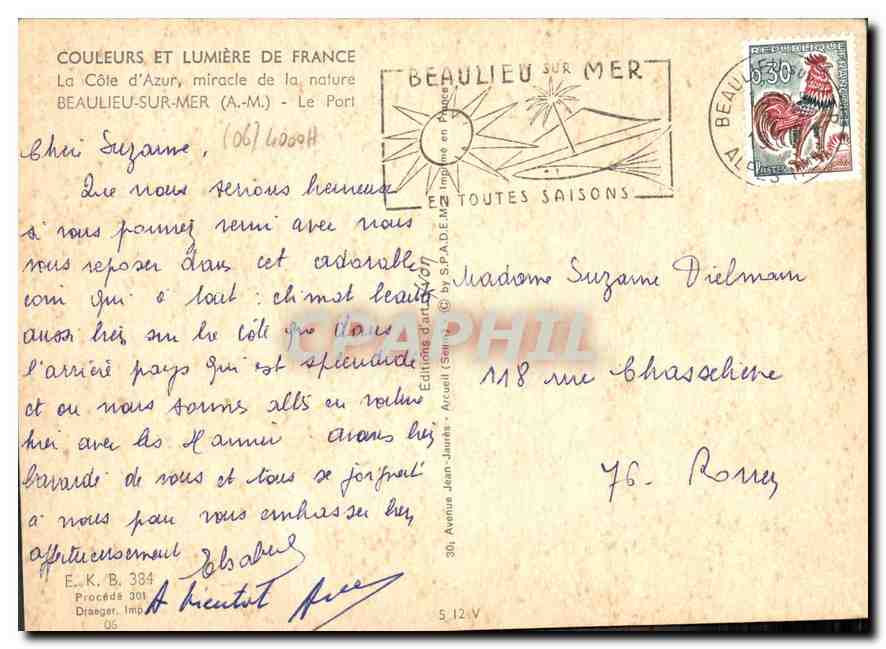 COULEURS ET LUMIÈRE DE FRANCE
La Côte d'Azur, miracle de la nature
BEAULIEU-SUR-MER (A.-M.) - Le Port
(06) 4000H
Chère Suzanne,
Que nous serions heureuse
si vous pouviez venir avec nous
vous reposer dans cet adorable
coin qui a tout : climat beauté
aussi bien sur la côte que dans
l'arrière pays qui est splendide
et où nous sommes allés en voiture
hier avec les Avons bien
bavardé de vous et tous se joignent
à nous pour vous embrasser bien
affectueusement
A bientôt
E. K. B. 384
Procédé 301
Draeger, Imp.
06
S 12 V
Éditions d'art Yvon
30, Avenue Jean-Jaurès - Arcueil (Seine) © by S.P.A.D.E.M. Imprimé en France
BEAULIEU SUR MER
EN TOUTES SAISONS
REPUBLIQUE FRANCAISE
0,30
POSTES
BEAULIEU
ALPES
Madame Suzanne Dielmann
118 rue Chasselièvre
76 - Rouen
CPAPHIL